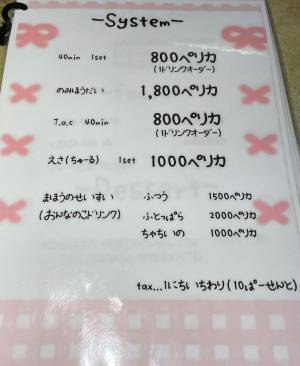 -System-
40min 1set 800ペリカ
(1ドリンクオーダー)
のみほうだい 1,800ペリカ
T.a.c 40min 800ペリカ
(1ドリンクオーダー)
えさ(ちゅーる) 1set 1000ペリカ
まほうのせいすい ふつう 1500ペリカ
(おんなのこドリンク) ふとっぱら 2000ペリカ
ちゃちいの 1000ペリカ
tax...1にちいちわり(10ぱーせんと)